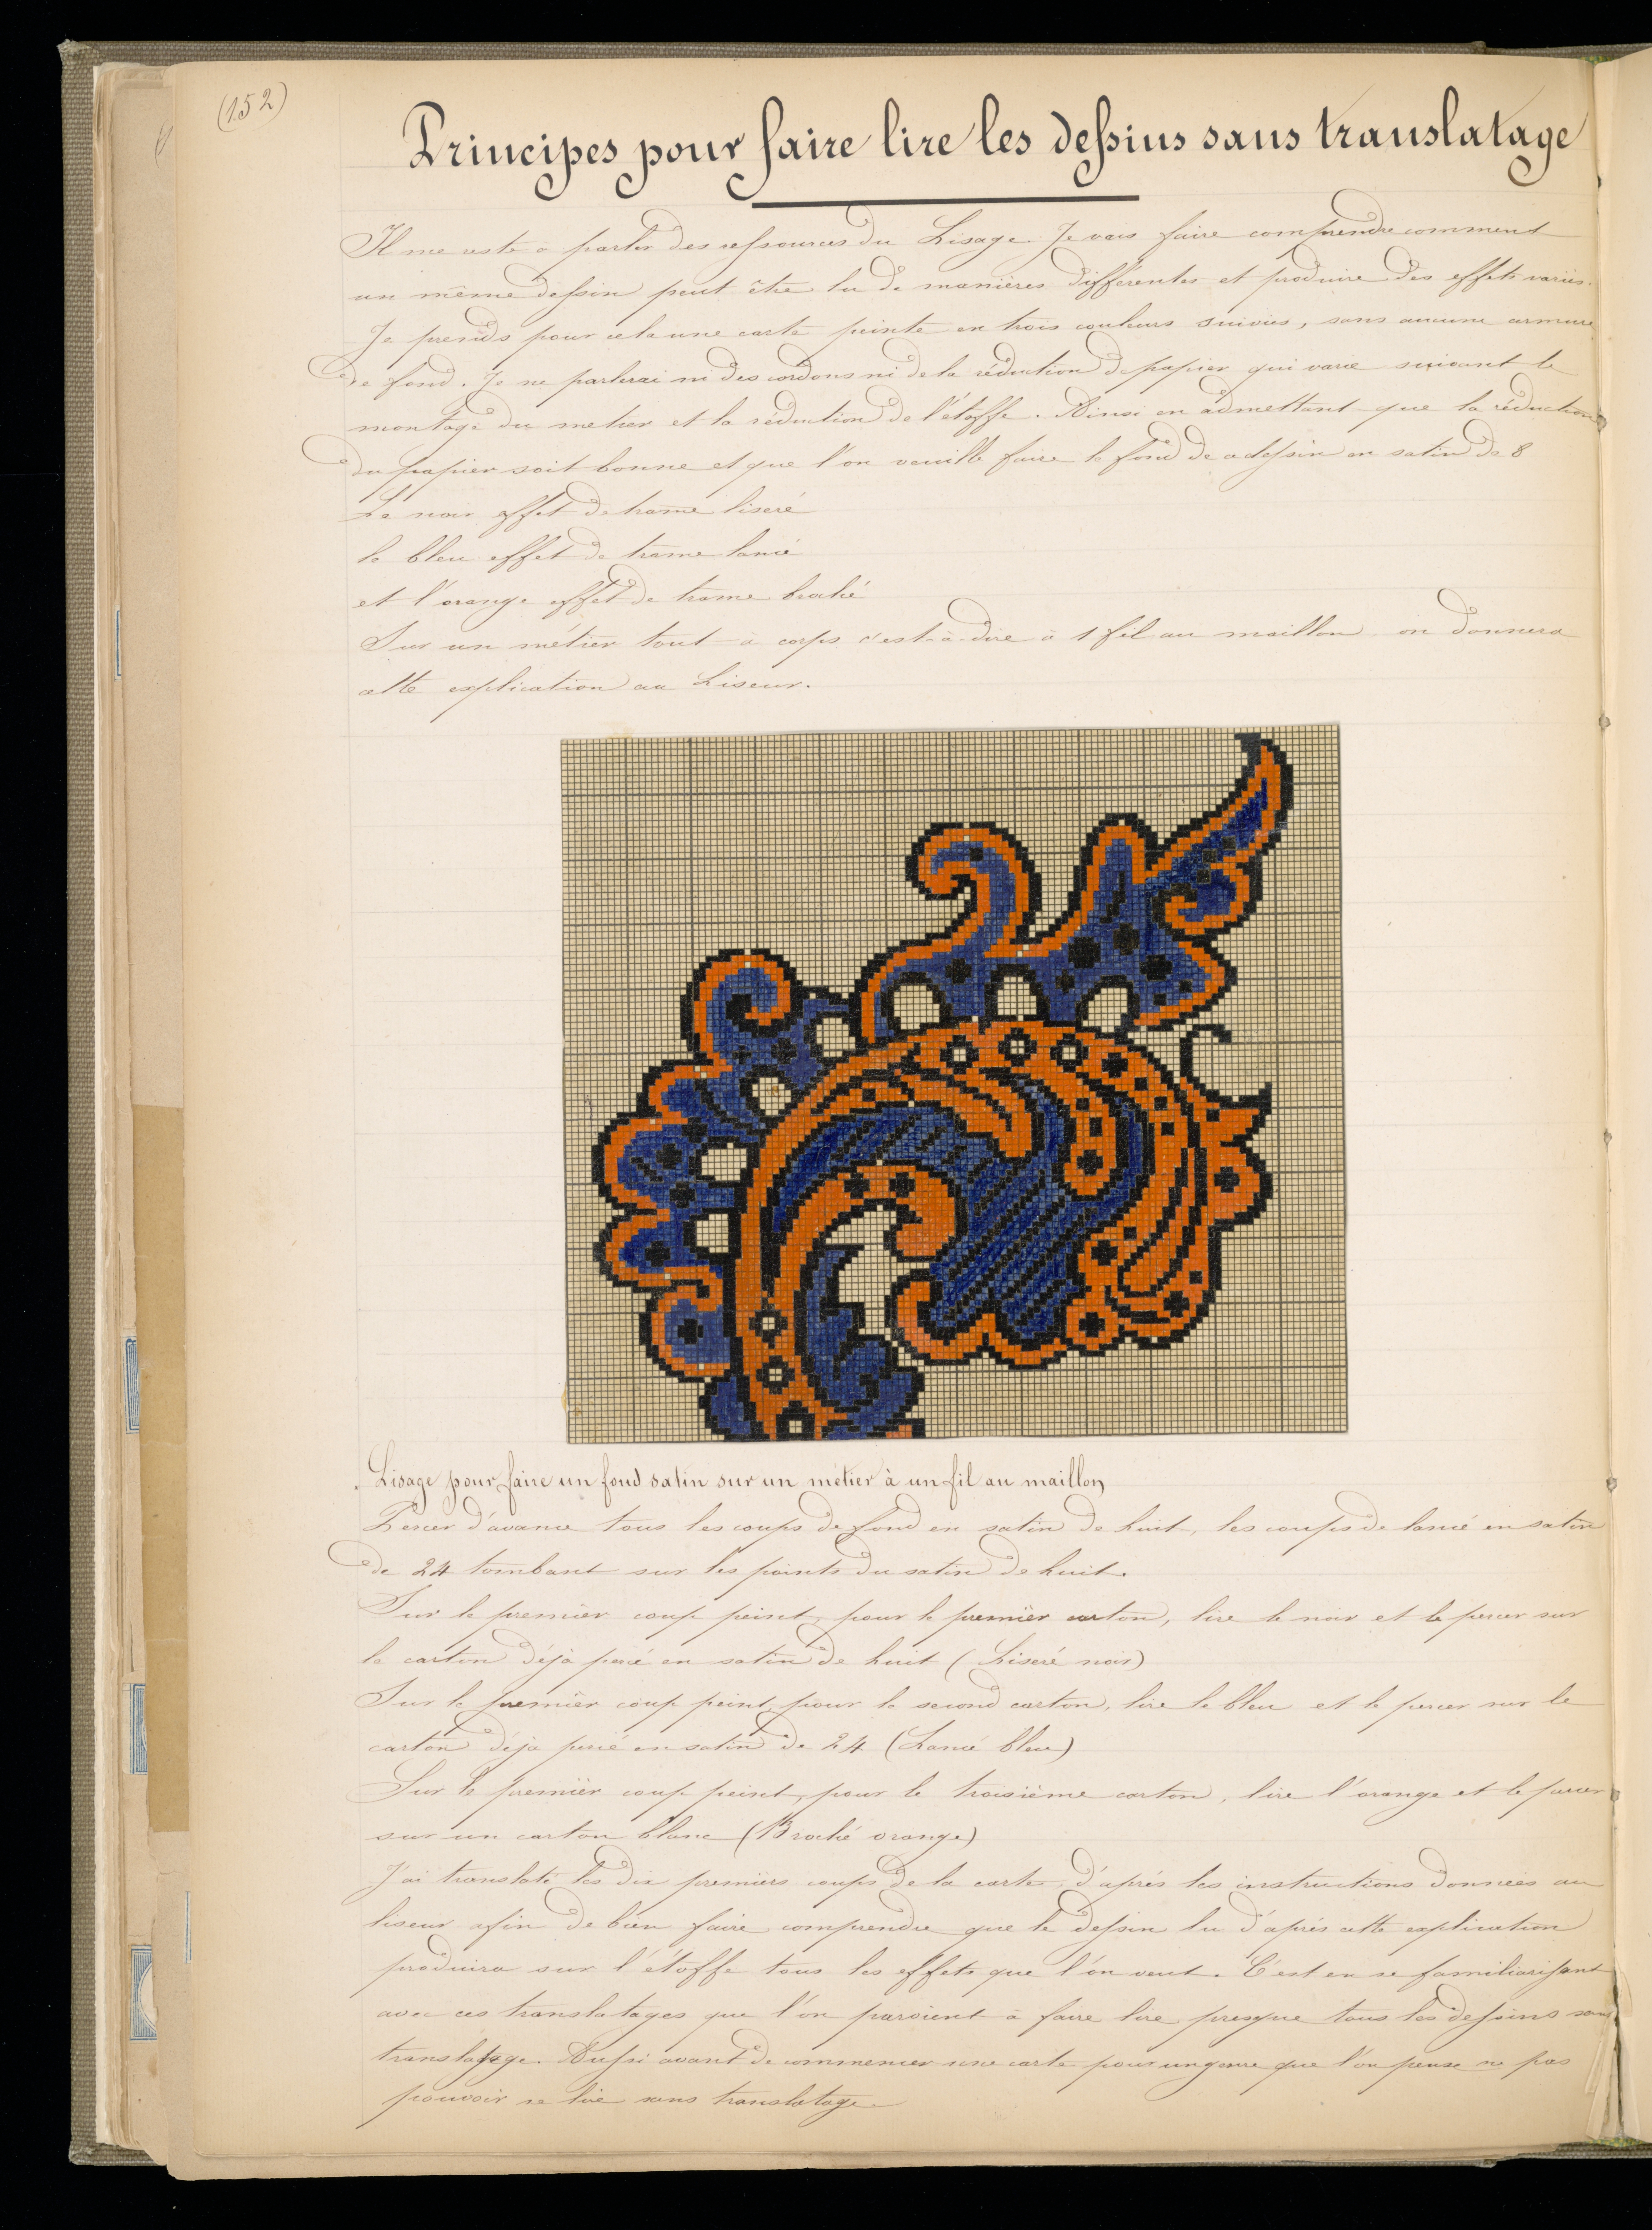 (152)
Principes pour faire lire les dessins sans translatage
Il me reste à parler des ressources du Lisage. Je vais faire comprendre comment
un même dessin peut être lu de manières différentes et produire des effets variés.
Je prends pour cela une carte peinte en trois couleurs suivies, sans aucune armure
de fond. Je ne parlerai ni des cordons ni de la réduction du papier qui varie suivant le
montage du metier et la réduction de l'étoffe. Ainsi en admettant que la réduction
du papier soit bonne et que l'on veuille faire le fond de ce dessin en satin de 8
Le noir effet de trame liseré
le bleu effet de trame lancé
et l'orange effet de trame broché
Sur un métier tout à corps c'est-à-dire à 1 fil au maillon on donnera
cette explication au Liseur.
Lisage pour faire un fond satin sur un métier à un fil au maillon
Percer d'avance tous les coups de fond en satin de huit, les coups de lancé en satin
de 24 tombant sur les points du satin de huit.
Sur le premier coup peint, pour le premier carton, lire le noir et le percer sur
le carton déjà percé en satin de huit (Liseré noir)
Sur le premier coup peint pour le second carton, lire le bleu et le percer sur le
carton déjà percé en satin de 24 (Lancé bleu)
Sur le premier coup peint, pour le troisième carton, lire l'orange et le percer
sur un carton blanc (Broché orange)
J'ai translaté les dix premiers coups de la carte, d'après les instructions données au
liseur afin de bien faire comprendre que le dessin lu d'après cette explication
produira sur l'étoffe tous les effets que l'on veut. C'est en se familiarisant
avec ces translatages que l'on parvient à faire lire presque tous les dessins sans
translatage. Aussi avant de commencer une carte pour un genre que l'on pense ne pas
pouvoir se lire sans translatage